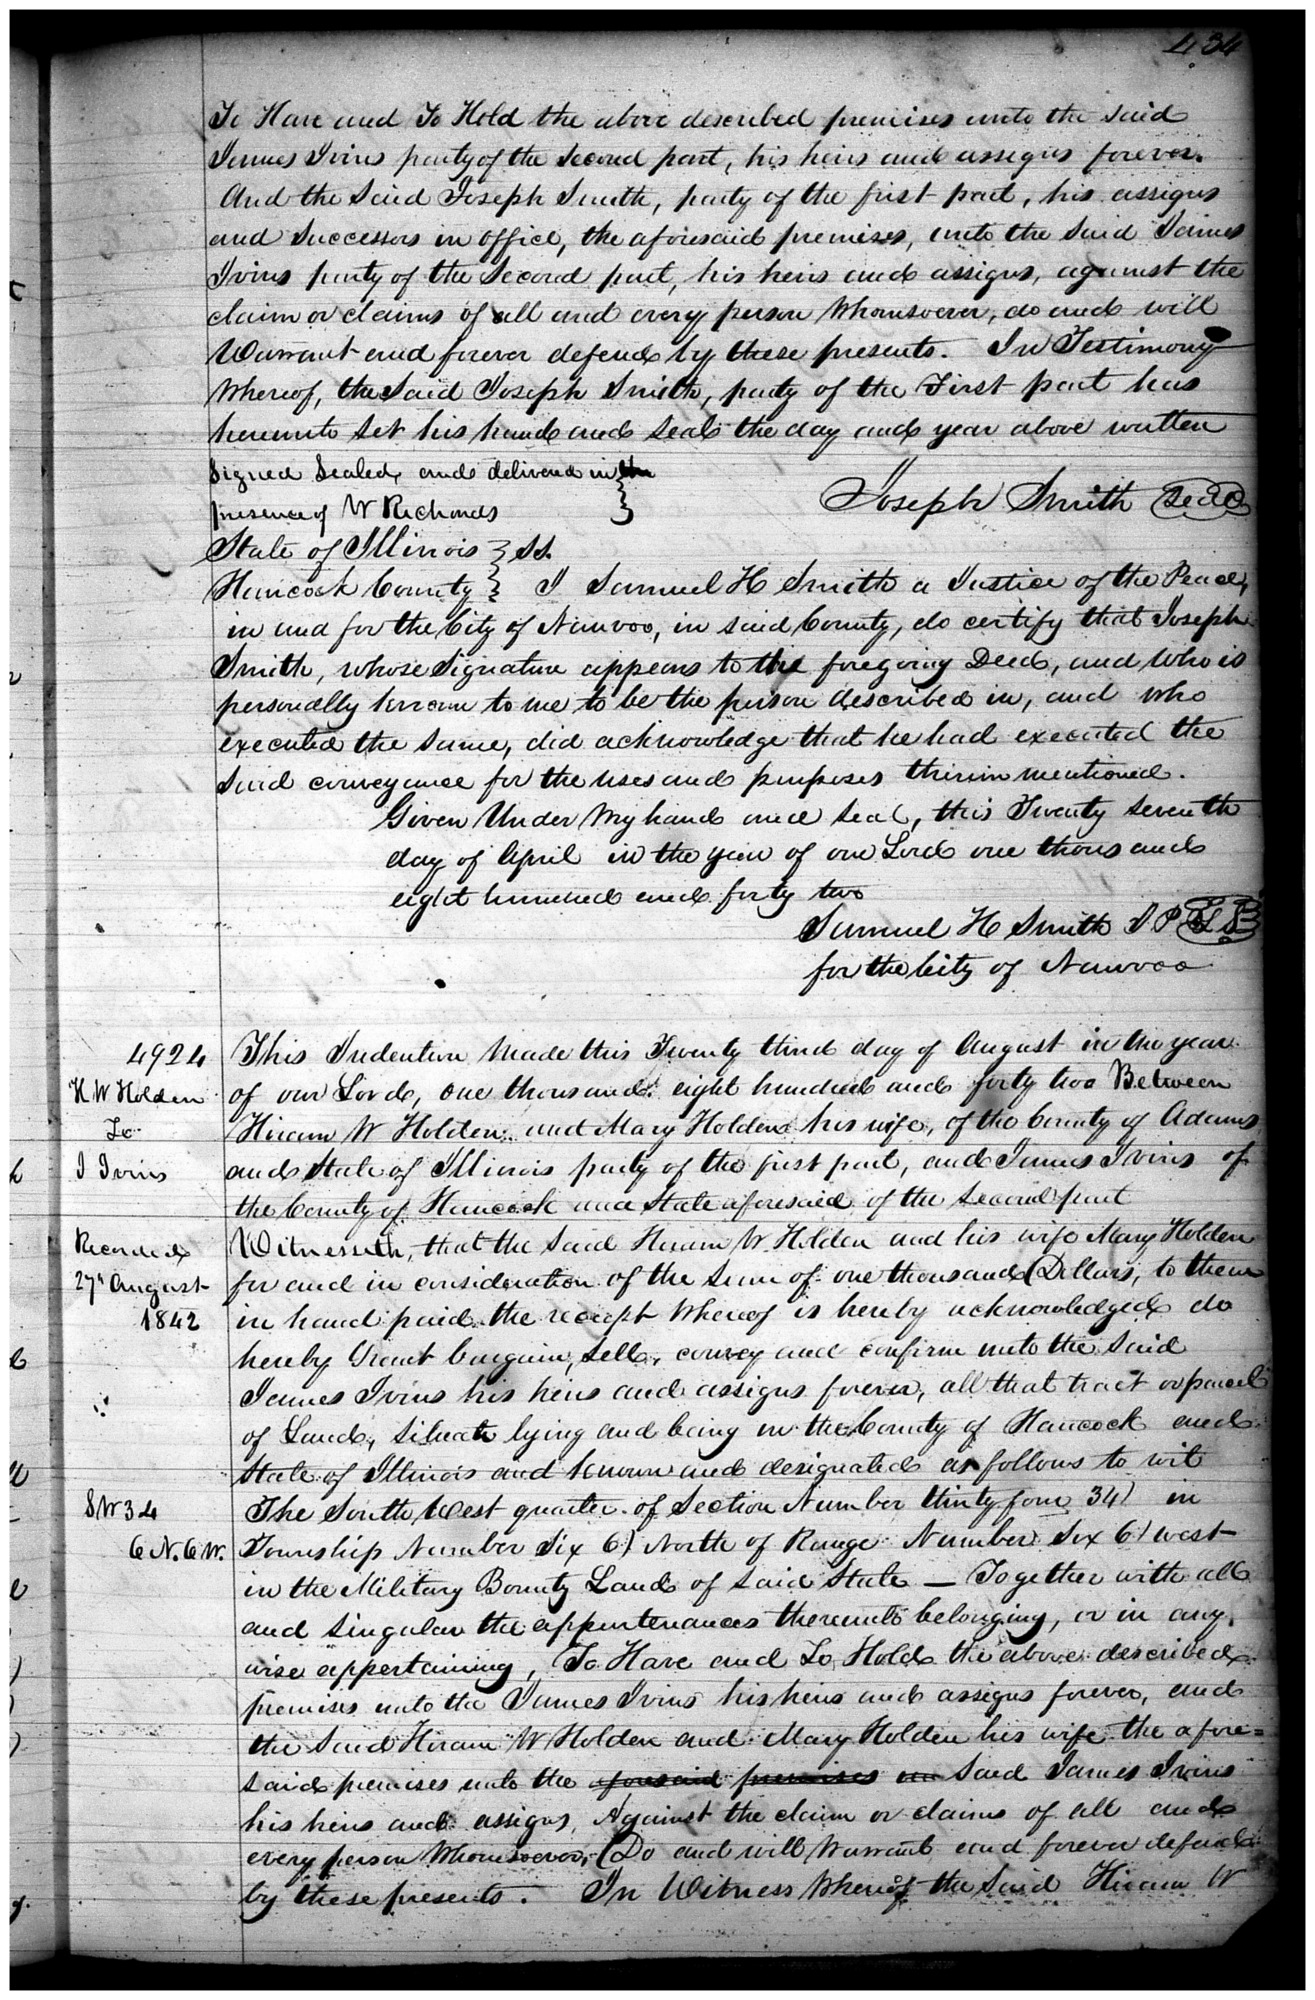 434
To Have and To Hold the above described premises unto the said
James Ivins party of the second part, his heirs and assigns forever.
And the said Joseph Smith, party of the first part, his assigns
and Successors in office, the aforesaid premises, unto the said James
Ivins party of the second part, his heirs and assigns, against the
claim or claims of all and every person Whomsoever, do and will
Warrant and forever defend by these presents. In Testimony
Whereof, the Said Joseph Smith, party of the First part has
hereunto set his hand and seal the day and year above written
Signed Sealed, and delivered in the
presence of W Richards
Joseph Smith Seal
State of Illinois } SS.
Hancock County } I Samuel H Smith a Justice of the Peace,
in and for the City of Nauvoo, in said County, do certify that Joseph
Smith, whose Signature appears to the foregoing Deed, and who is
personally known to me to be the person described in, and who
executed the same, did acknowledge that he had executed the
said conveyance for the uses and purposes therein mentioned.
Given Under My hand and seal, this Twenty seventh
day of April in the year of our Lord one thousand
eight hundred and forty two
Samuel H Smith J P L S
for the City of Nauvoo
4924
H W Holden
To
J Ivins
Recorded
27th August
1842
This Indenture Made this Twenty third day of August in the year
of our Lord, one thousand eight hundred and forty two Between
Hiram W Holden and Mary Holden his wife, of the County of Adams
and State of Illinois party of the first part, and James Ivins of
the County of Hancock and State aforesaid of the second part
Witnesseth, that the said Hiram W. Holden and his wife Mary Holden
for and in consideration of the sum of one thousand Dollars, to them
in hand paid the receipt Whereof is hereby acknowledged do
hereby Grant bargain, sell, convey and confirm unto the said
James Ivins his heirs and assigns forever, all that tract or parcel
of Land, situate lying and being in the County of Hancock and
State of Illinois and known and designated as follows to wit
SW 34
6 N. 6 W.
The South West quarter of Section Number thirty four 34) in
Township Number Six 6) North of Range Number Six 6) west
in the Military Bounty Land of said State — Together with all
and singular the appurtenances thereunto belonging, or in any
wise appertaining, To Have and To Hold the above described
premises unto the James Ivins his heirs and assigns forever, and
the said Hiram W Holden and Mary Holden his wife the afore=
said premises unto the aforesaid premises un said James Ivins
his heirs and assigns, Against the claim or claims of all and
every person Whomsoever, Do and will Warrant and forever defend
by these presents. In Witness Whereof the said Hiram W